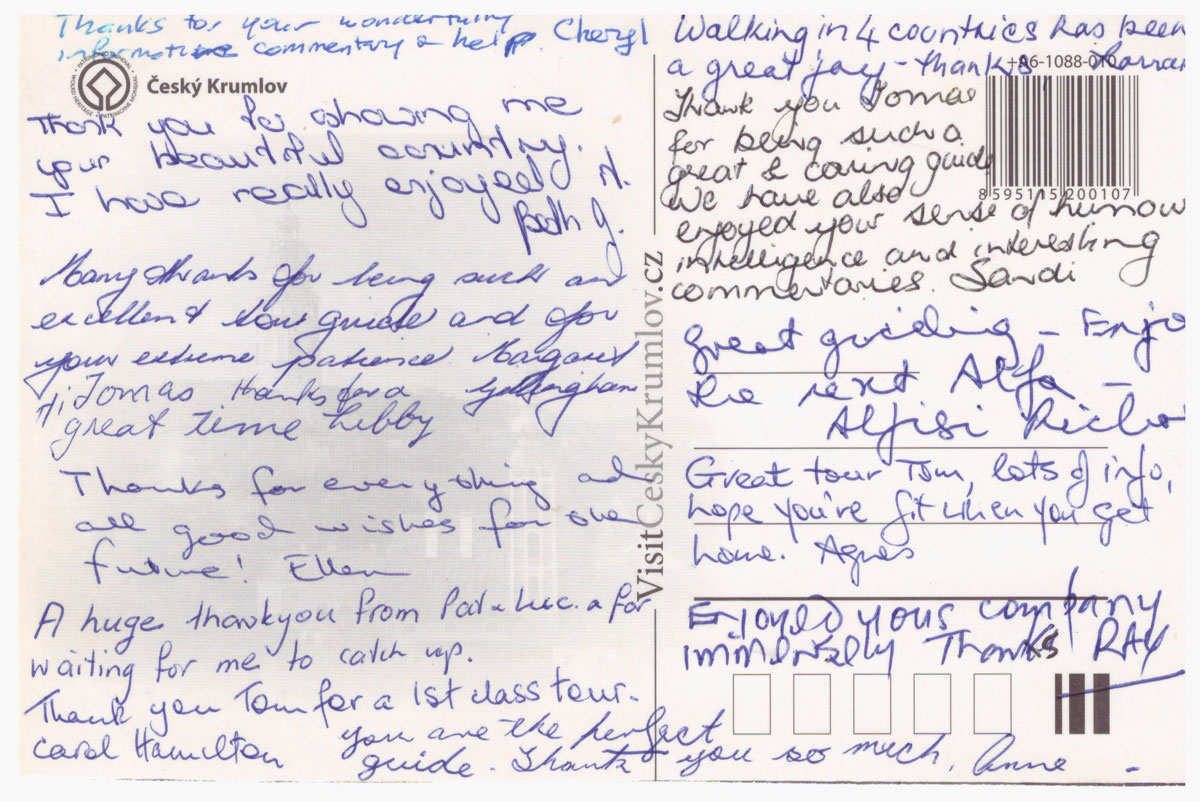 Thanks for your
commentary & help. Cheryl
Český Krumlov
Thank you for showing me
your beautiful country.
I have really enjoyed it.
Beth G.
Many thanks for being such an
excellent tour guide and for
your extreme patience Margaret
Gillingham
Hi Tomas thanks for a
great time Libby
Thanks for everything and
all good wishes for the
future! Ellen
A huge thankyou from Pat & for
waiting for me to catch up.
Thank you Tom for a 1st class tour.
Carol Hamilton
you are the perfect
guide. Thank you so much, Anne
VisitCeskyKrumlov.cz
Walking in 4 countries has been
a great joy - thanks
Thank you Tomas
for being such a
great & caring guide
We have also
enjoyed your sense of humour
intelligence and interesting
commentaries. Sandi
8 595115 200107
Great guiding - Enjo
the next Alfa -
Great tour Tom, lots of info,
hope you're fit when you get
home. Agnes
Enjoyed your company
immensely Thanks RAY